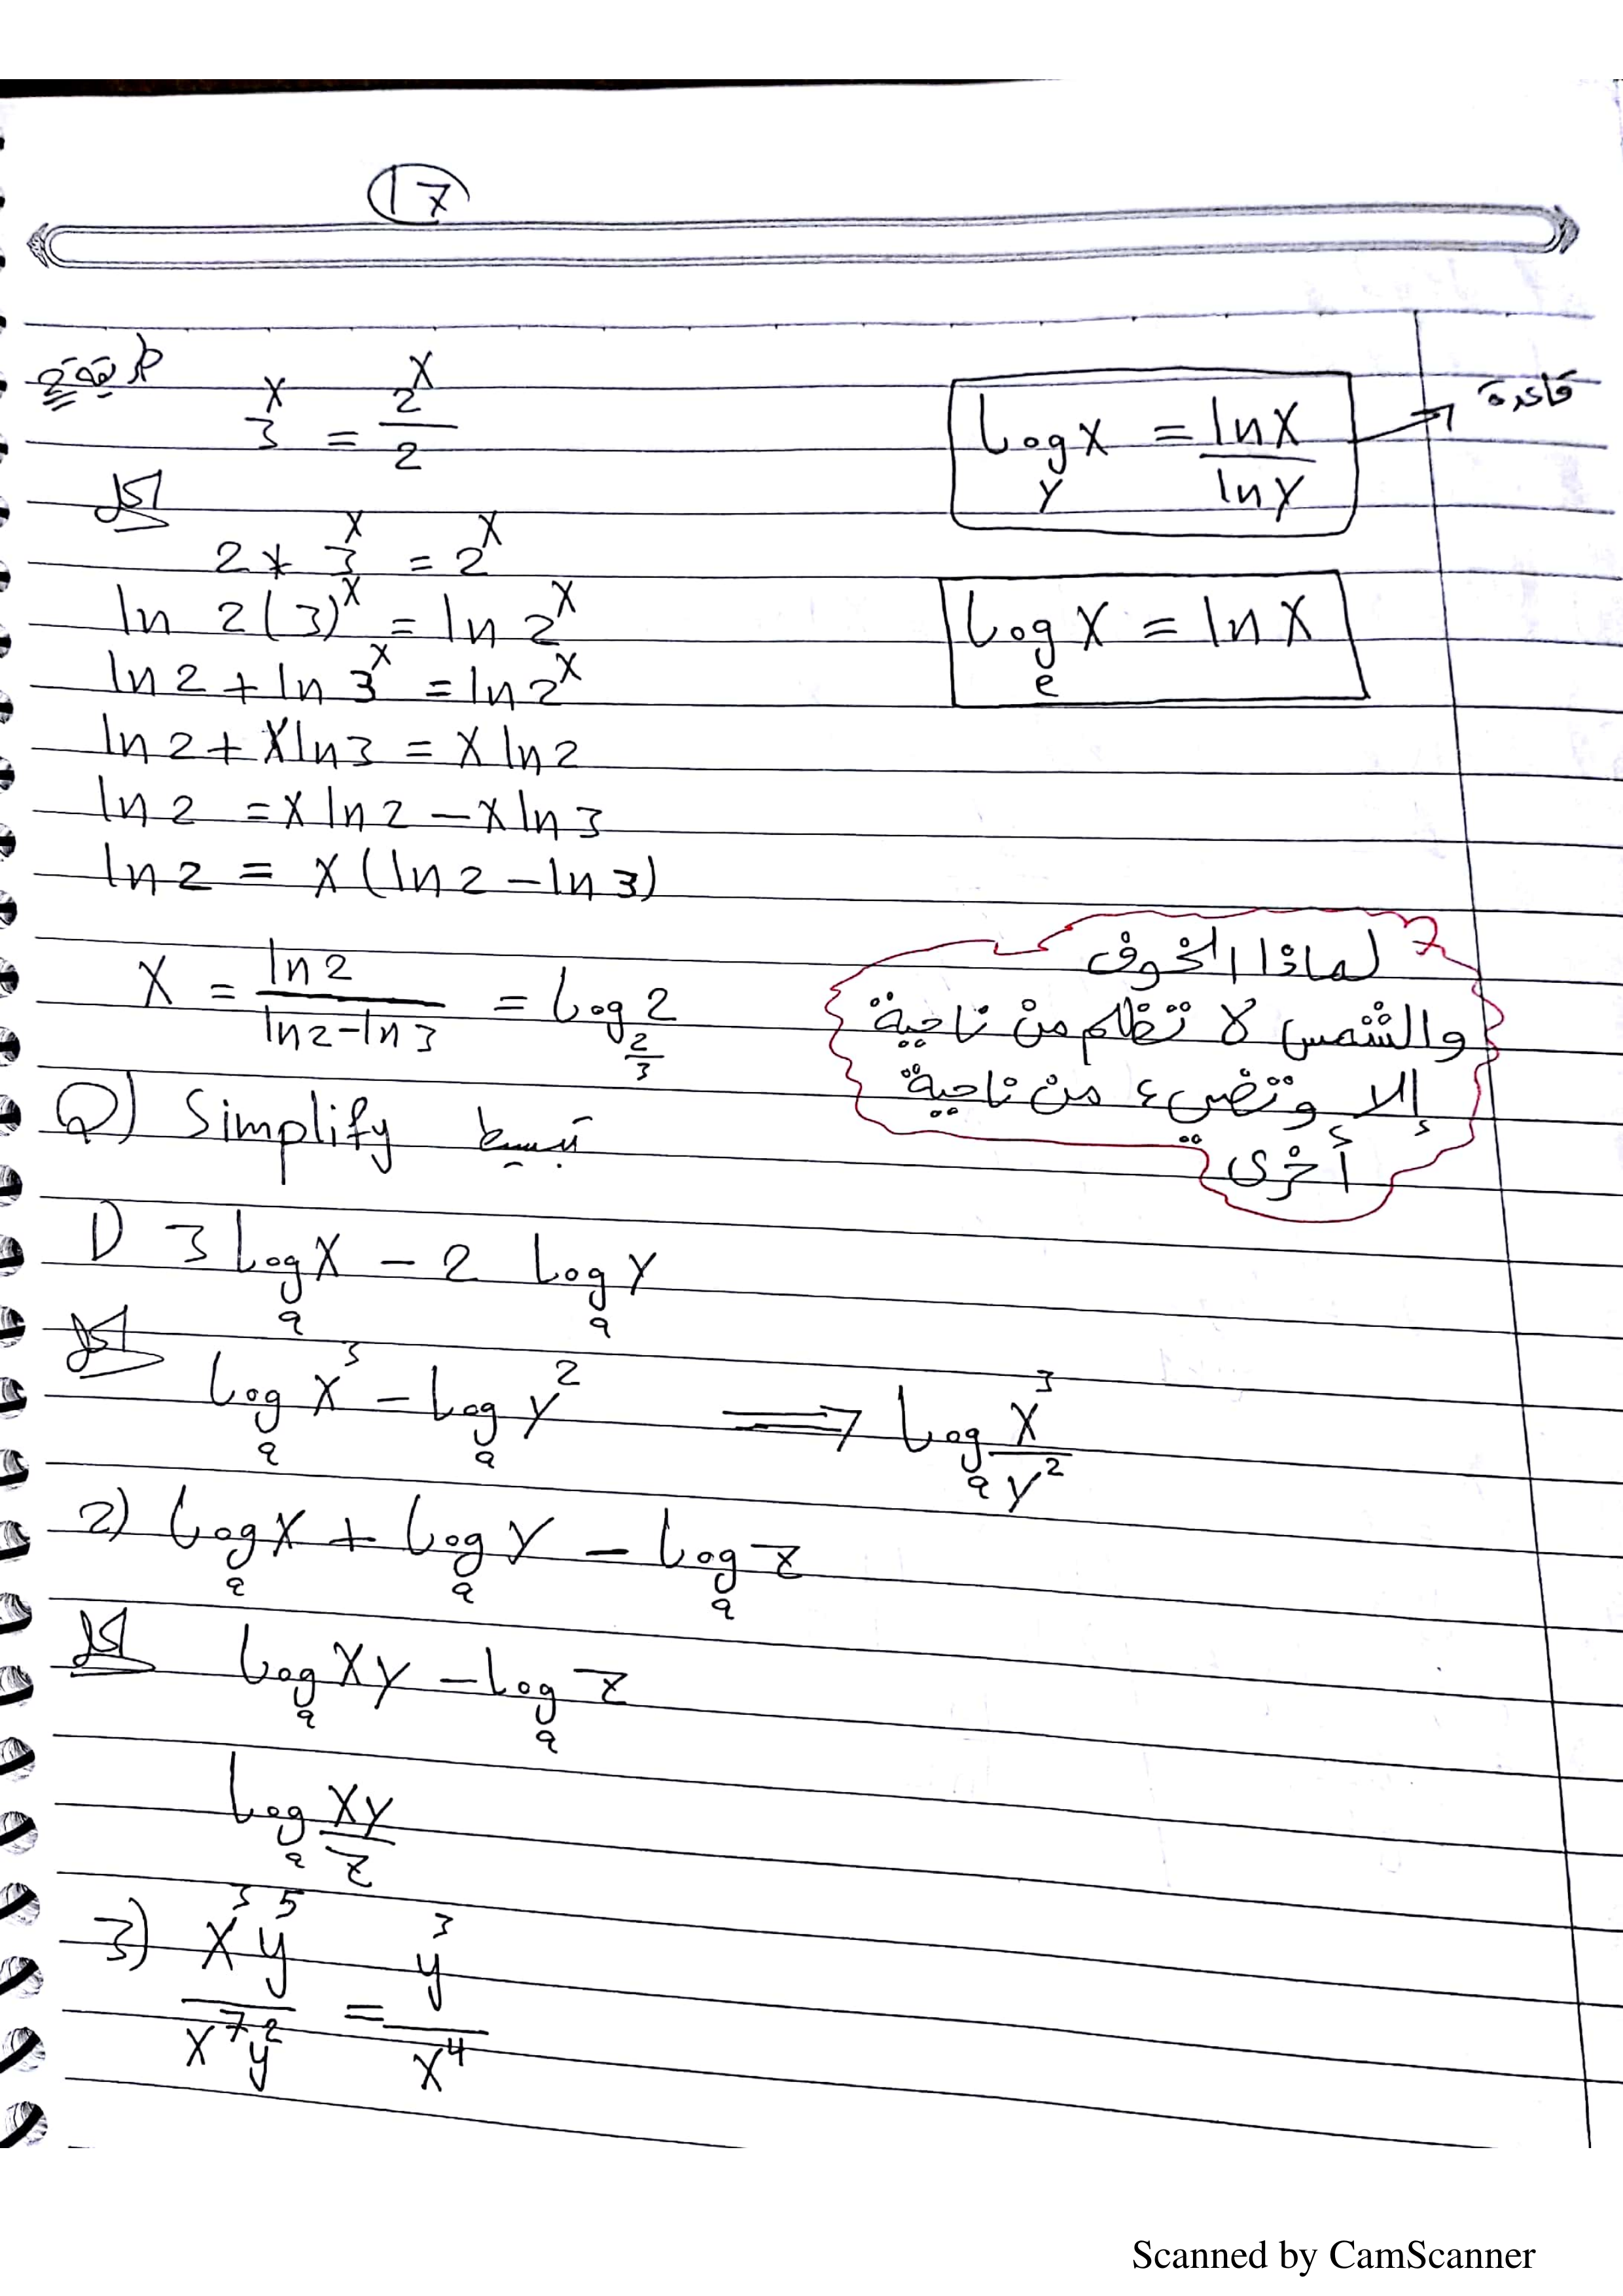 17
طريقة 2
3^x = 2^x / 2
log_y x = ln x / ln y
قاعدة
الحل
2 * 3^x = 2^x
ln 2(3)^x = ln 2^x
log_e x = ln x
ln 2 + ln 3^x = ln 2^x
ln 2 + x ln 3 = x ln 2
ln 2 = x ln 2 - x ln 3
ln 2 = x (ln 2 - ln 3)
لماذا الخوف
والشمس لا تظلم من ناحية
إلا وتضيء من ناحية
أخرى
x = ln 2 / (ln 2 - ln 3) = log_{2/3} 2
Q) Simplify تبسيط
1) 3 log_a x - 2 log_a y
الحل
log_a x^3 - log_a y^2 ⟹ log_a x^3 / y^2
2) log_a x + log_a y - log_a z
الحل
log_a xy - log_a z
log_a xy / z
3) x^3 y^5 / x^7 y^2 = y^3 / x^4
Scanned by CamScanner